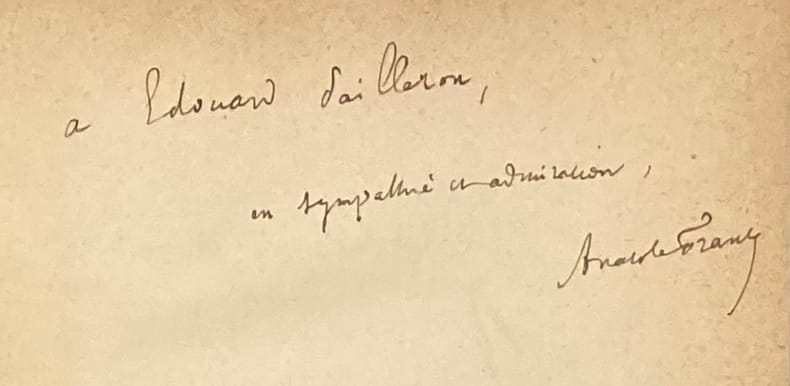 a Edouard Pailleron,
en sympathie et admiration,
Anatole France